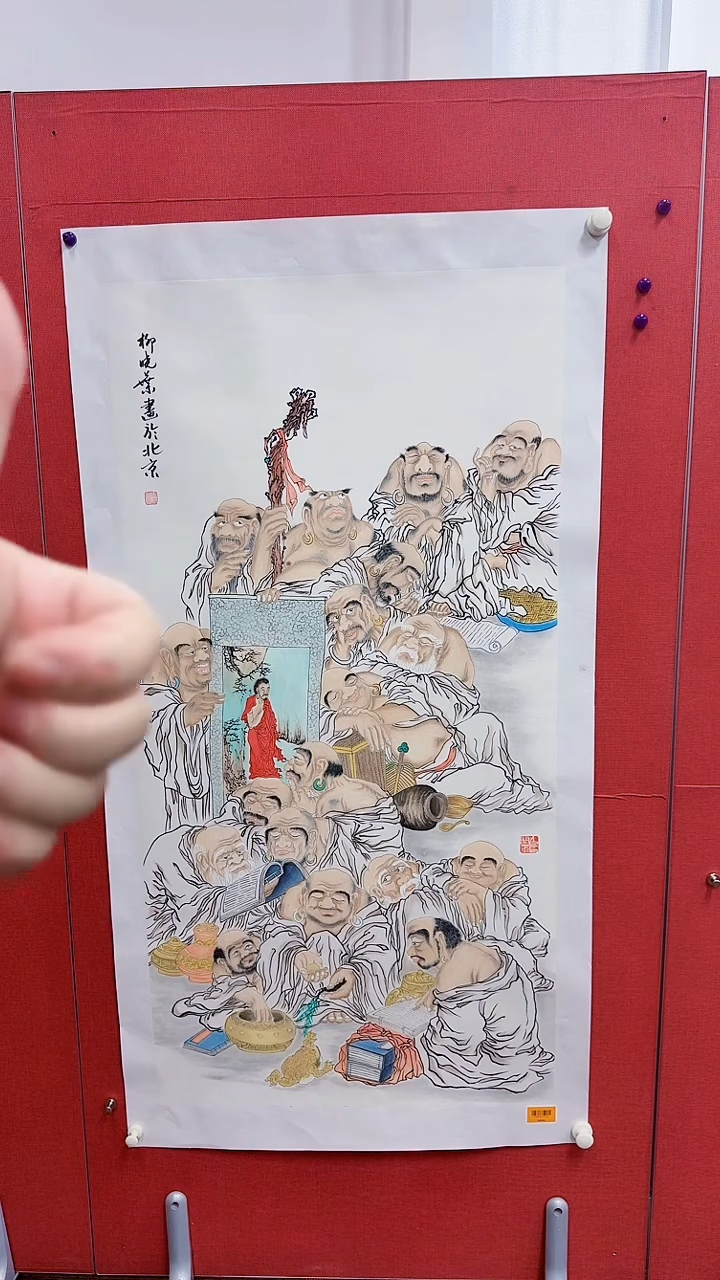 柳晓叶画於北京